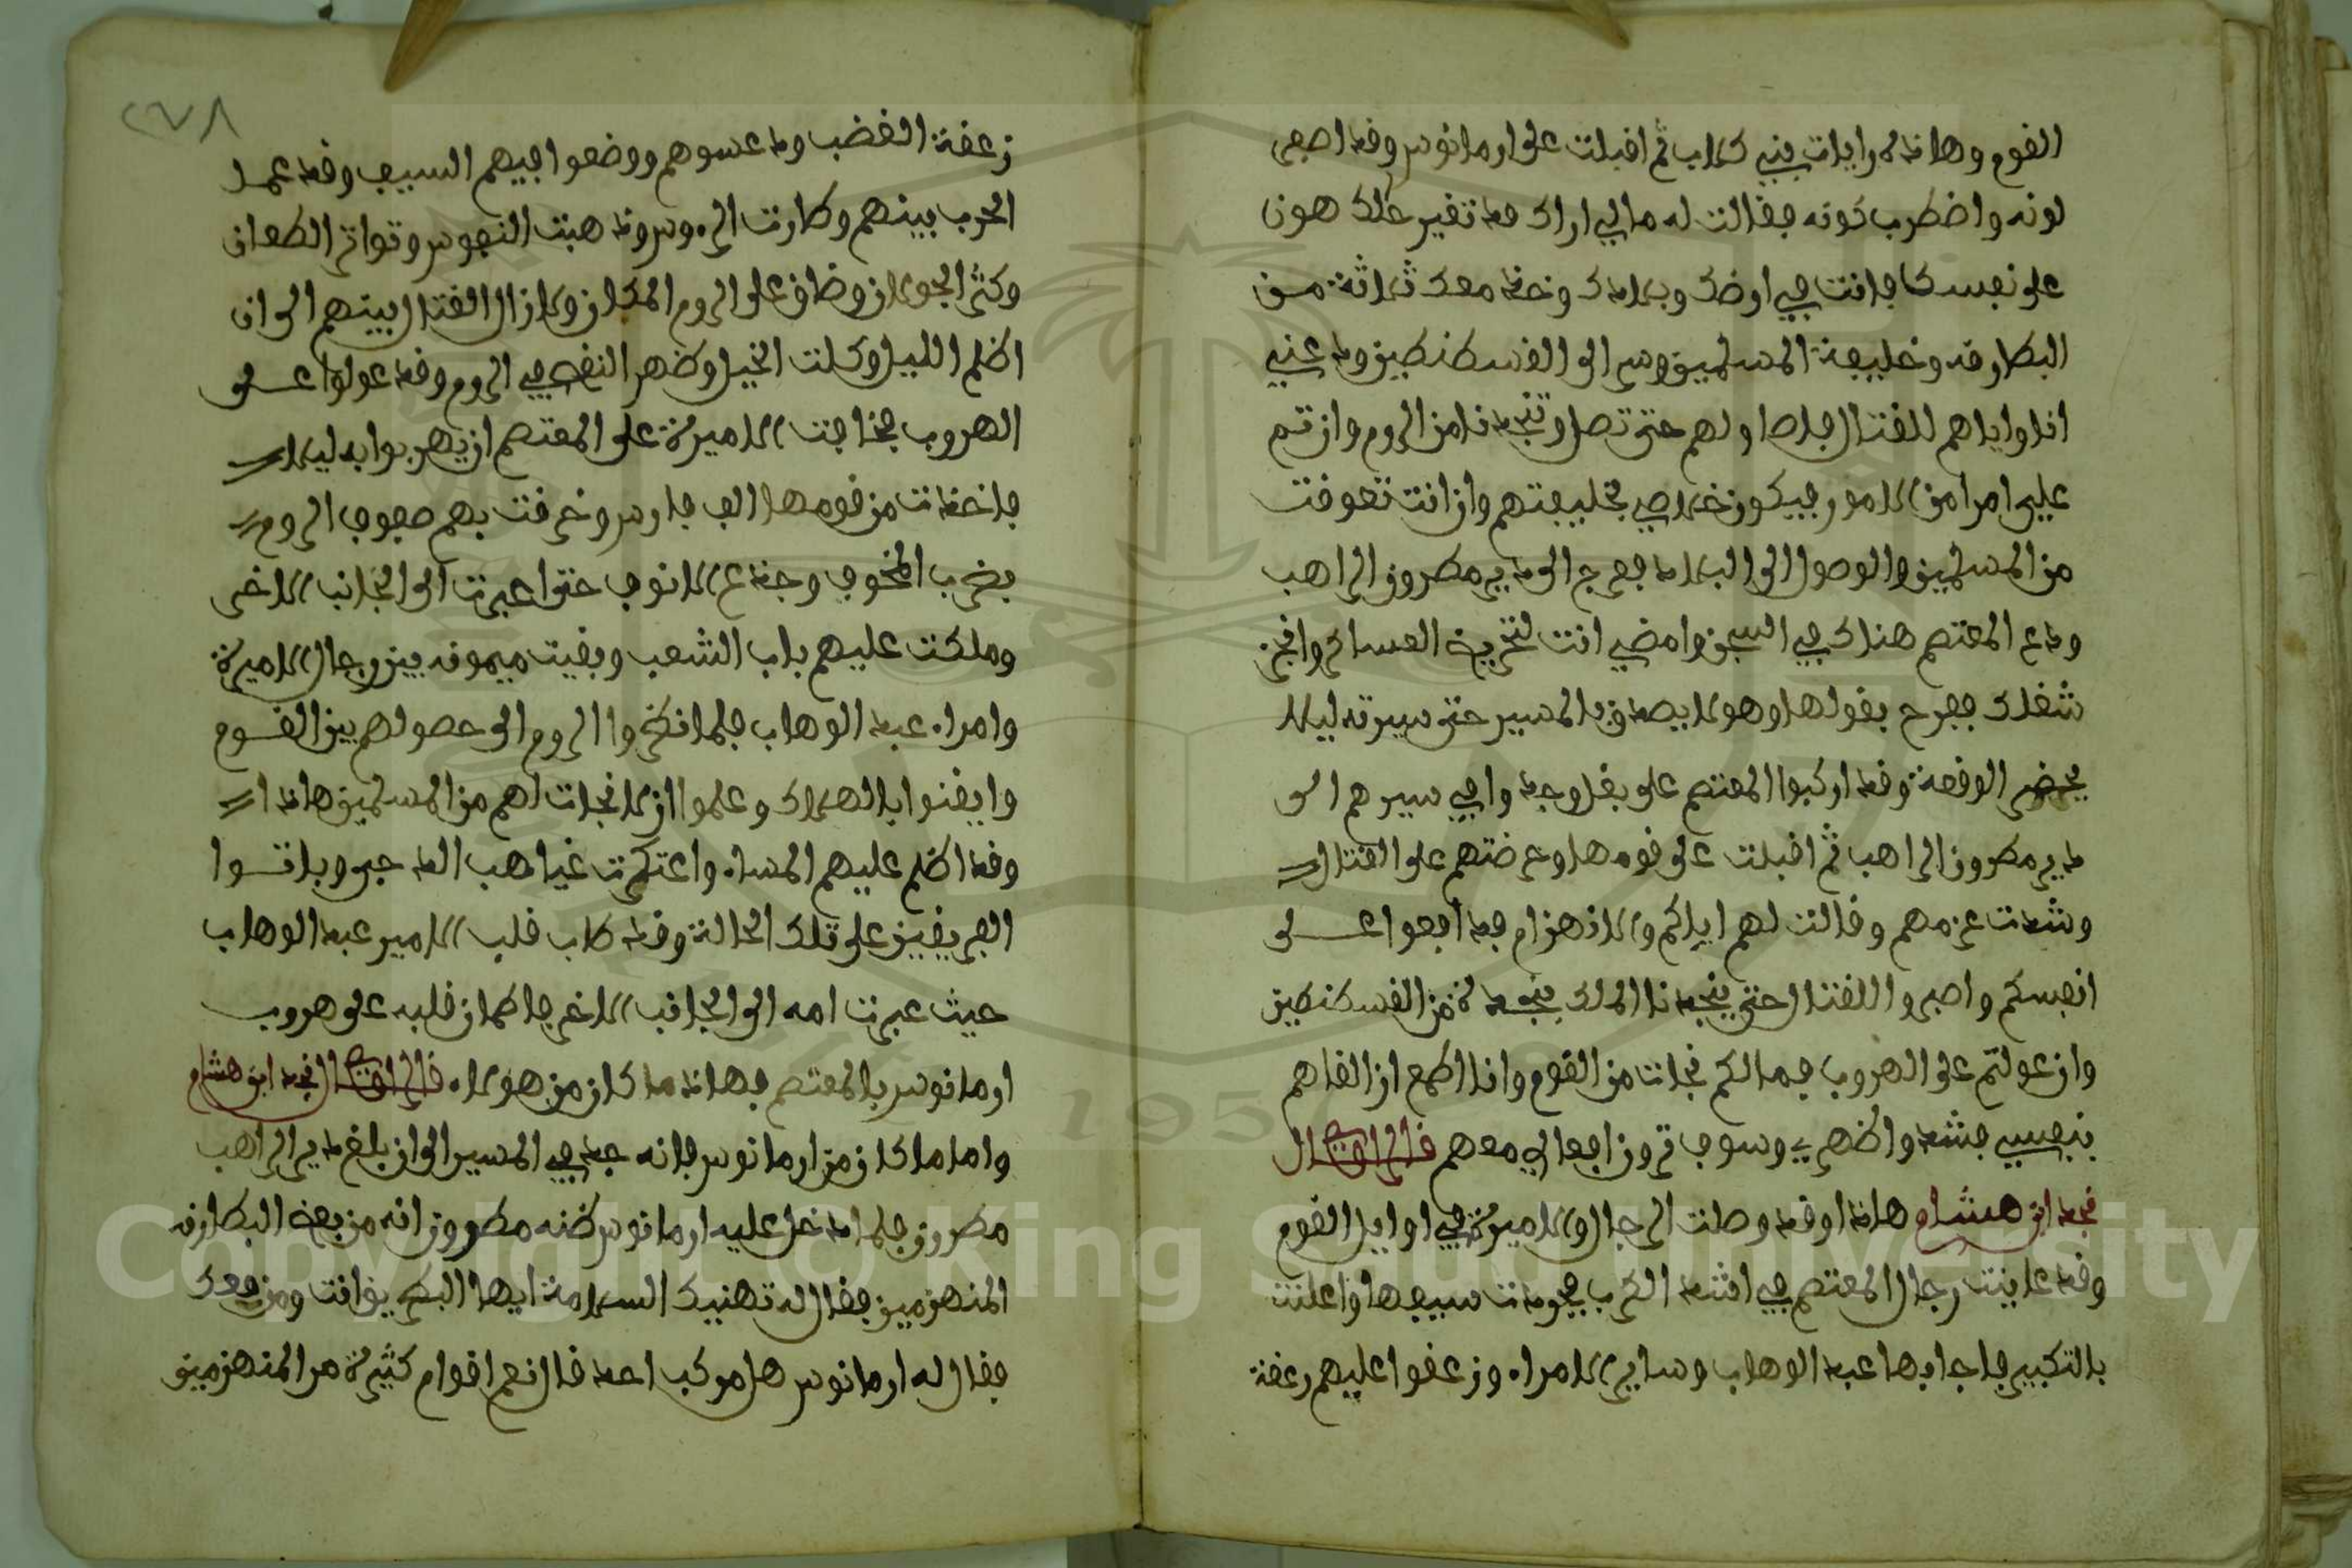 القوم وهاذه رايات بني كلاب ثم اقبلت على ارمانوس وقد اصفى
لونه واضطرب كونه فقالت له مالي اراك قد تغير عليك هون
على نفسك فانت في ارضك وبلادك وخذ معك ثلاثة من
البطارقه وخليفة المسلمين وسر الى القسطنطين ودعني
انا واياهم للقتال فاطاولهم حتى تصل وتنجدنا من الروم وان تم
علي امرا من الامور فيكون خلاصي بخليفتهم وان انت تعوقت
من المسلمين والوصول الى البلاد فعرج الى دير مطرون الراهب
ودع المعتصم هناك في السجن وامضي انت لتخريج العساكر وانجز
شغلك ففرح بقولها وهو لا يصدق بالمسير حتى سيرته ليلا
يحضر الوقعة وقد اركبوا المعتصم على بغل وجد وافي سيرهم الى
دير مطرون الراهب ثم اقبلت على قومها وعرضتهم على القتال
وشدت عزمهم وقالت لهم اياكم والانهزام فدافعوا على
انفسكم واصبروا للقتال حتى ينجدنا الملك بنجدة من القسطنطين
وان عولتم على الهروب فمالكم نجات من القوم وانا اطمع ان القاهم
بنفسي فشدوا ظهري وسوف ترون افعالي معهم قال الراوي
نجد ابن هشام هاذا وقد وصلت الرجال والاميرة في اوايل القوم
وقد عاينت رجال المعتصم في اشد الكرب فجردت سيفها واعلنت
بالتكبير فاجابها عبد الوهاب وساير الامراء وزعقوا عليهم زعقة
٢٧٨
زعقة الغضب ودعسوهم ووضعوا فيهم السيف وقد عمل
الحرب بينهم وطارت الروس وذهبت النفوس وتواتر الطعان
وكثر الجولان وضاق على الروم المكان ولازال القتال بينهم الى ان
اظلم الليل وكلت الخيل وظهر النقص في الروم وقد عولوا على
الهروب فخافت الاميرة على المعتصم ان يهربوا به ليلا
فاخذت من قومها الف فارس وخرقت بهم صفوف الروم
بضرب القحوف وجدع الانوف حتى اعبرت الى الجانب الاخر
وملكت عليهم باب الشعب وبقيت ميمونه بين رجال الاميرة
وامراء عبد الوهاب فلما نظروا الروم الى حصولهم بين القوم
وايقنوا بالهلاك وعلموا ان لا نجات لهم من المسلمين هاذا
وقد اظلم عليهم المساء واعتكرت غياهب الدجى وباتوا
الفريقين على تلك الحالة وقد طاب قلب الامير عبد الوهاب
حيث عبرت امه الى الجانب الاخر فاطمان قلبه على هروب
ارمانوس بالمعتصم فهاذا ما كان من هولاء قال الراوي نجد ابن هشام
واما ما كان من ارمانوس فانه جد في المسير الى ان بلغ دير الراهب
مطرون فلما دخل عليه ارمانوس ظنه مطرون انه من بعض البطارقه
المنهزمين فقال له تهنيك السلامة ايها البطريق انت ومن معك
فقال له ارمانوس هل مر بك احد قال نعم اقوام كثيرة من المنهزمين